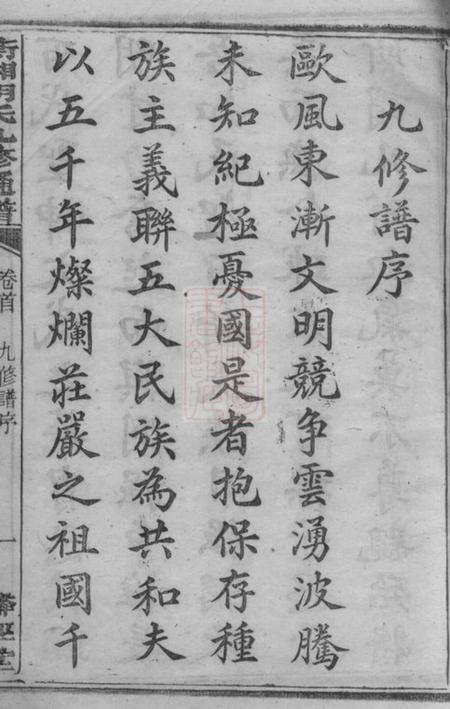 九修譜序
歐風東漸文明競争雲湧波騰
未知紀極憂國是者抱保存種
族主義聯五大民族為共和夫
以五千年燦爛莊嚴之祖國千
氏九修通譜
卷首
九修譜序
一
堂